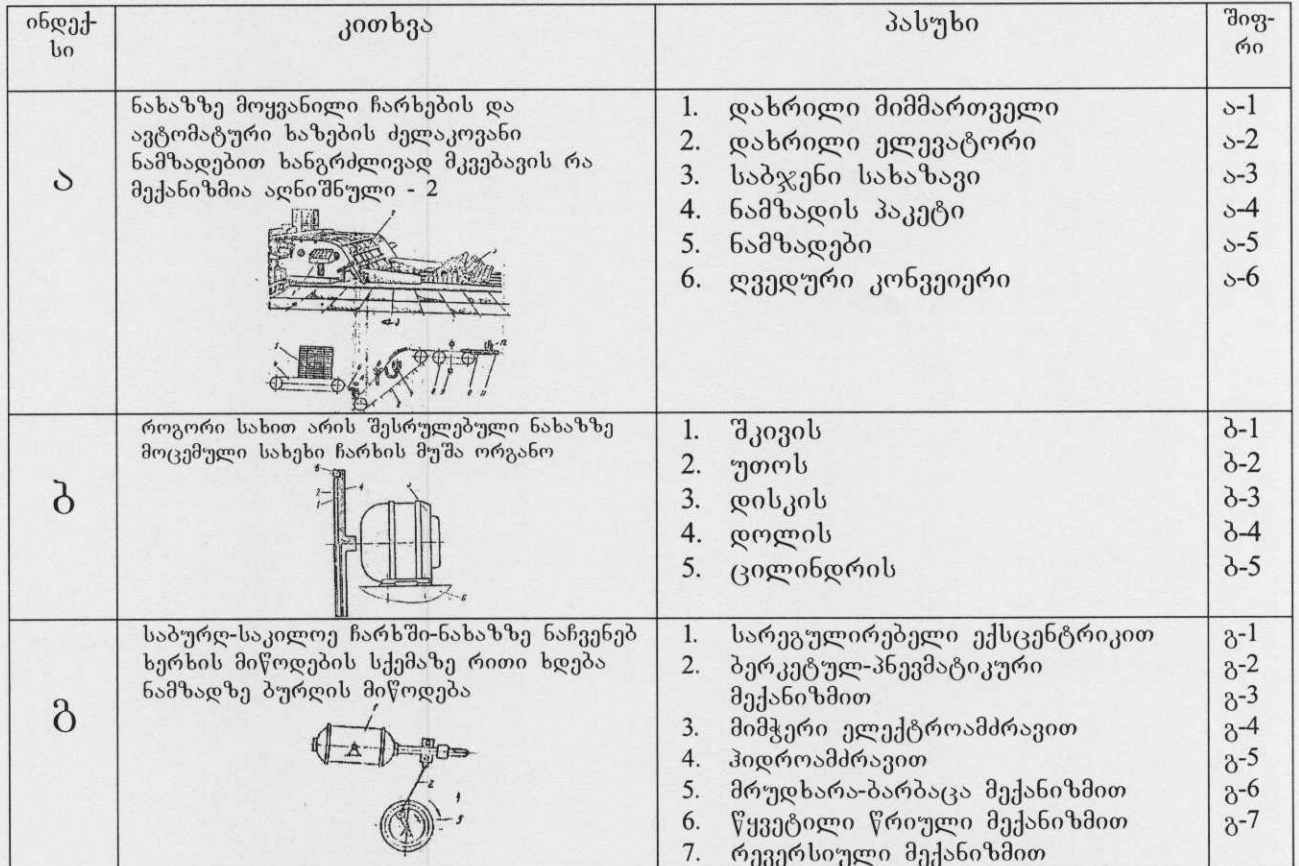 ინდექ-
სი
კითხვა
პასუხი
შიფ-
რი
ა
ნახაზზე მოყვანილი ჩარხების და
ავტომატური ხაზების ძელაკოვანი
ნამზადებით ხანგრძლივად მკვებავის რა
მექანიზმია აღნიშნული - 2
1. დახრილი მიმმართველი
2. დახრილი ელევატორი
3. საბჯენი სახაზავი
4. ნამზადის პაკეტი
5. ნამზადები
6. ღვედური კონვეიერი
ა-1
ა-2
ა-3
ა-4
ა-5
ა-6
ბ
როგორი სახით არის შესრულებული ნახაზზე
მოცემული სახეხი ჩარხის მუშა ორგანო
1. შკივის
2. უთოს
3. დისკის
4. დოლის
5. ცილინდრის
ბ-1
ბ-2
ბ-3
ბ-4
ბ-5
გ
საბურღ-საკილოე ჩარხში-ნახაზზე ნაჩვენებ
ხერხის მიწოდების სქემაზე რითი ხდება
ნამზადზე ბურღის მიწოდება
1. სარეგულირებელი ექსცენტრიკით
2. ბერკეტულ-პნევმატიკური
მექანიზმით
3. მიმჭერი ელექტროამძრავით
4. ჰიდროამძრავით
5. მრუდხარა-ბარბაცა მექანიზმით
6. წყვეტილი წრიული მექანიზმით
7. რევერსიული მექანიზმით
გ-1
გ-2
გ-3
გ-4
გ-5
გ-6
გ-7